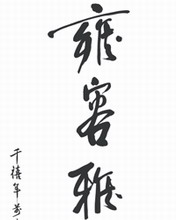 雍容雅
千禧年